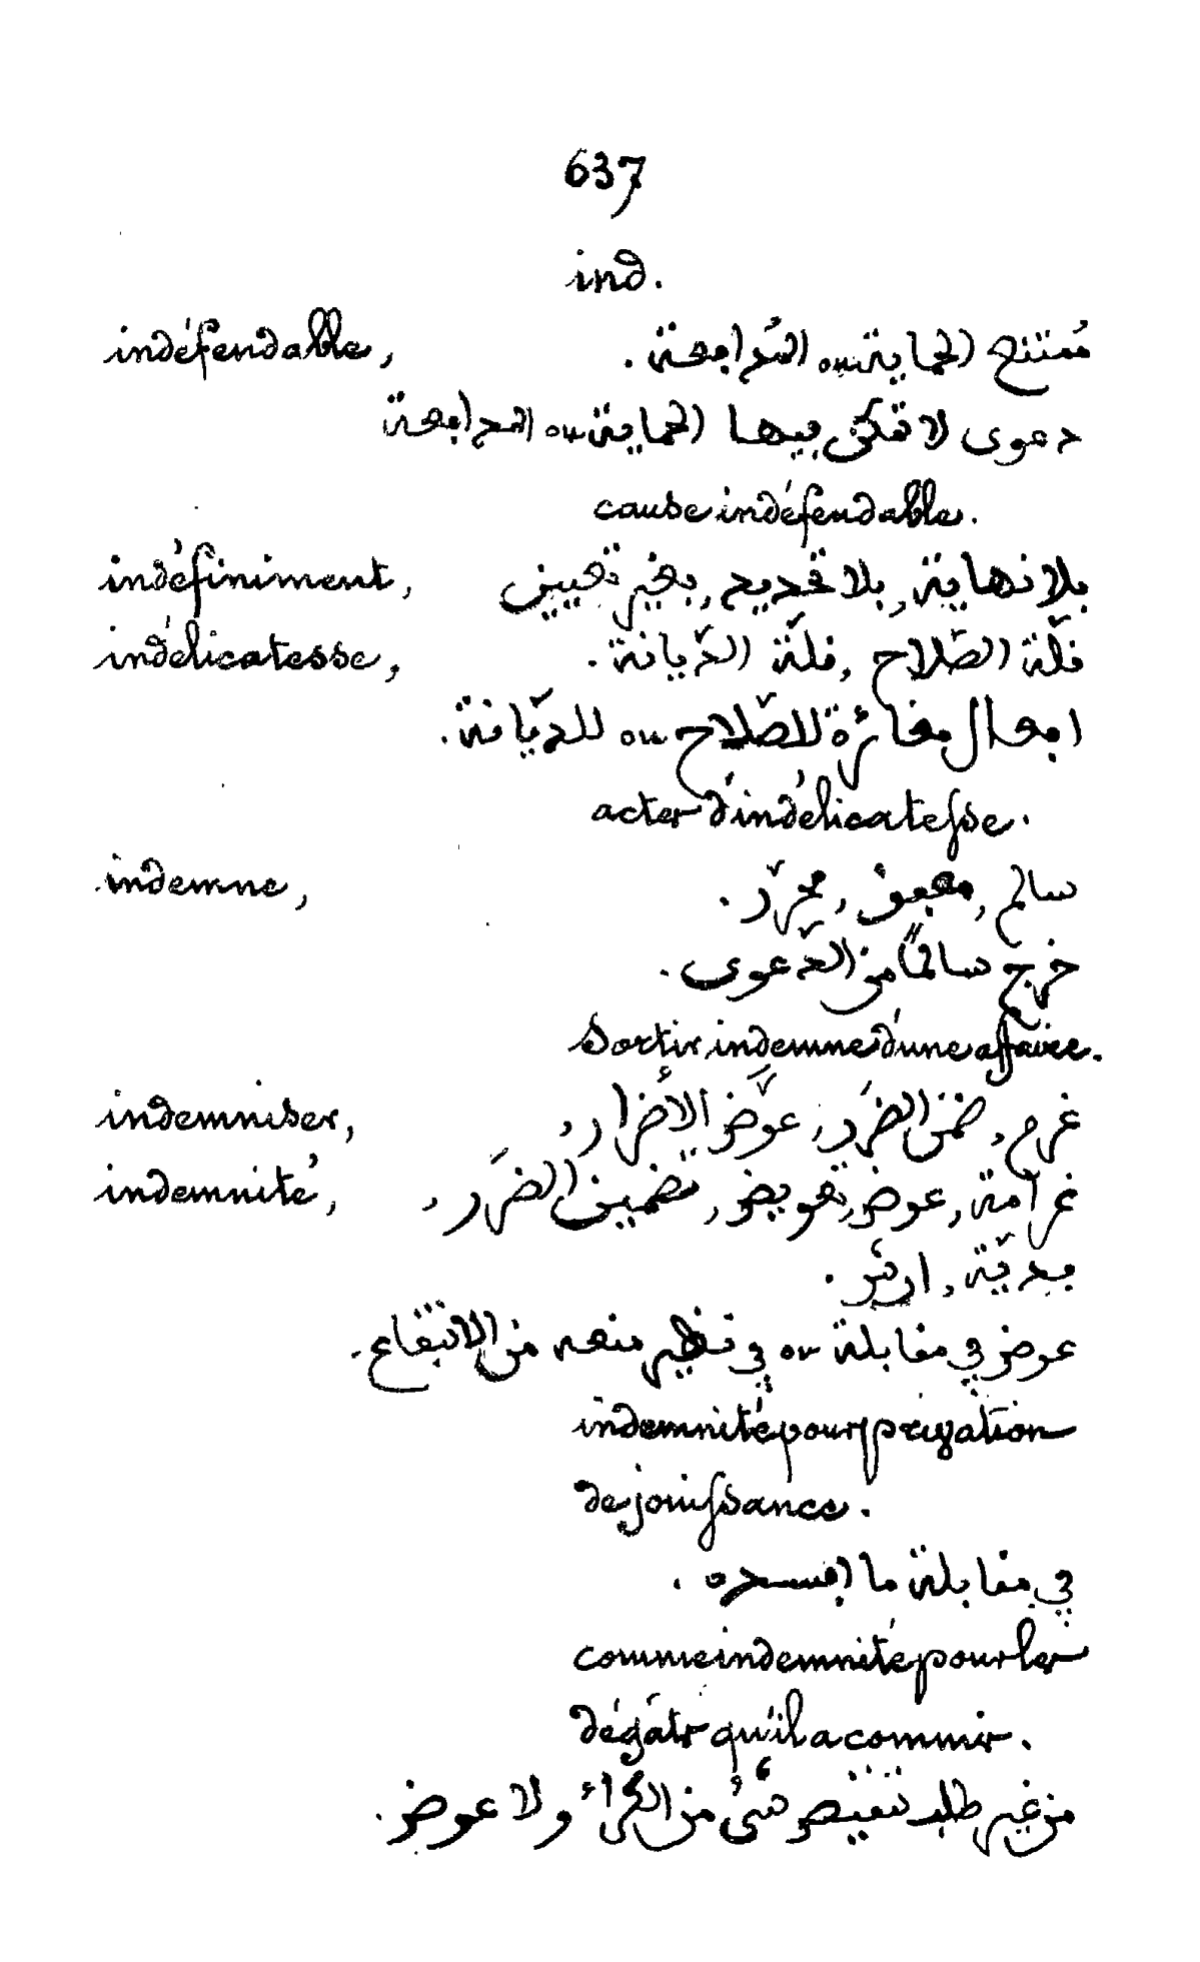 637
ind.
indéfendable, مُمتنع الحماية ou المُدافعة .
دعوى لا تمكن فيها الحماية ou المدافعة
cause indéfendable.
indéfiniment, بلا نهاية, بلا تحديد, بغير تعيين
indélicatesse, قلّة الصّلاح, قلّة الدّيانة .
افعال مغائرة للصّلاح ou للدّيانة .
actes d'indélicatesse.
indemne, سالم, معفو, محرّر .
خرج سالمًا من الدّعوى .
Sortir indemne d'une affaire.
indemniser, غرم, ضمن الضرَر, عوَّض الأضرار,
indemnité, غرامة, عوض, تعويض, تضمين الضرَر,
فديّة, ارش .
عوض في مقابلة ou في نظير منعه من الانتفاع .
indemnité pour privation
de jouissance.
في مقابلة ما افسده .
comme indemnité pour les
dégâts qu'il a commis.
من غير طلب تنقيص شيْ من الكراء ولا عوض .